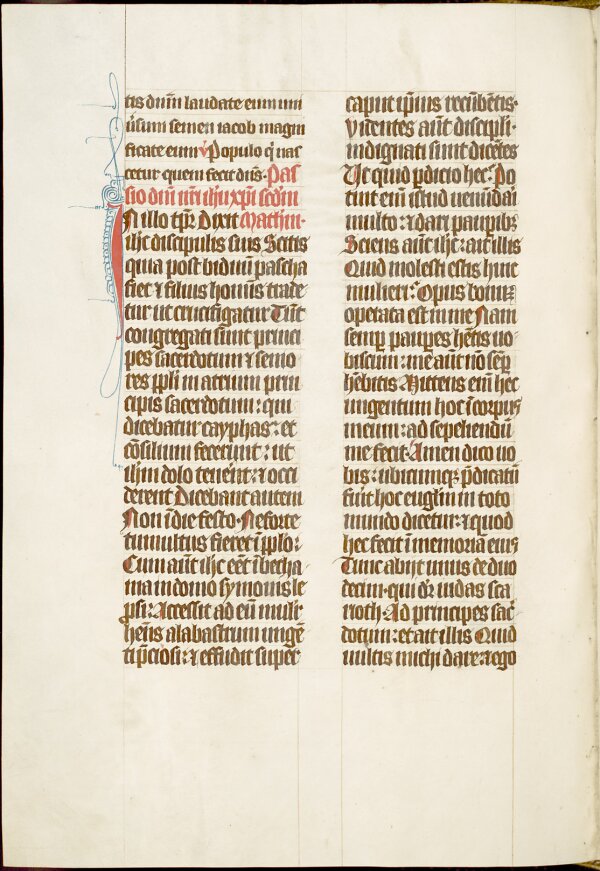 tis dnm laudate eum uni
ūsum semen iacob magni
ficate eum Populo q̄ nas
cetur quem fecit dn̄s. Pas
sio dn̄i nr̄i ihu xp̄i scd̄m
In illo tp̄r Dixit Mathm.
ih̄c discipulis suis Scitis
quia post biduū pascha
fiet ⁊ filius hominis trade
tur ut crucifigatur Tūc
congregati sunt princi
pes sacerdotum ⁊ senio
res pp̄li in atrium prin
cipis sacerdotum: qui
dicebatur cayphas: et
cōsilium fecerunt: ut
ih̄m dolo tenēnt: ⁊ occi
derent Dicebant autem
Non ī die festo. Ne forte
tumultus fieret ī pp̄lo:
Cum aūt ih̄c eēt ī betha
nia in domo symonis le
psi: Accessit ad eū mulīr
hēns alabastrum ungē
ti p̄ciosi: ⁊ effudit super
caput ip̄ius recūbētis.
Videntes aūt discipli.
indignati sunt dicētes
Ut quid p̄dicio hec: Po
tuit eīm istud uenūdai
multo: ⁊ dari paupib₉
Sciens aūt ih̄c: ait illis
Quid molesti estis huic
mulieri: Opus bonū
operata est in me Nam
semp̄ paup̄es hētis uo
biscum: me aūt nō sēp̄
hēbitis Mittens eīm hec
ungentum hoc ī corpus
meum: ad sepeliendū
me fecit. Amen dico uo
bis: ubicumq₃ p̄dicatū
fūit hoc euglīm in toto
mundo dicetur: ⁊ quod
hec fecit ī memoriā eius
Tunc abijt unus de duo
decim. qui dr̄ iudas sca
rioth. Ad principes sac̄
dotum: et ait illis Quid
uultis michi dare: ⁊ ego